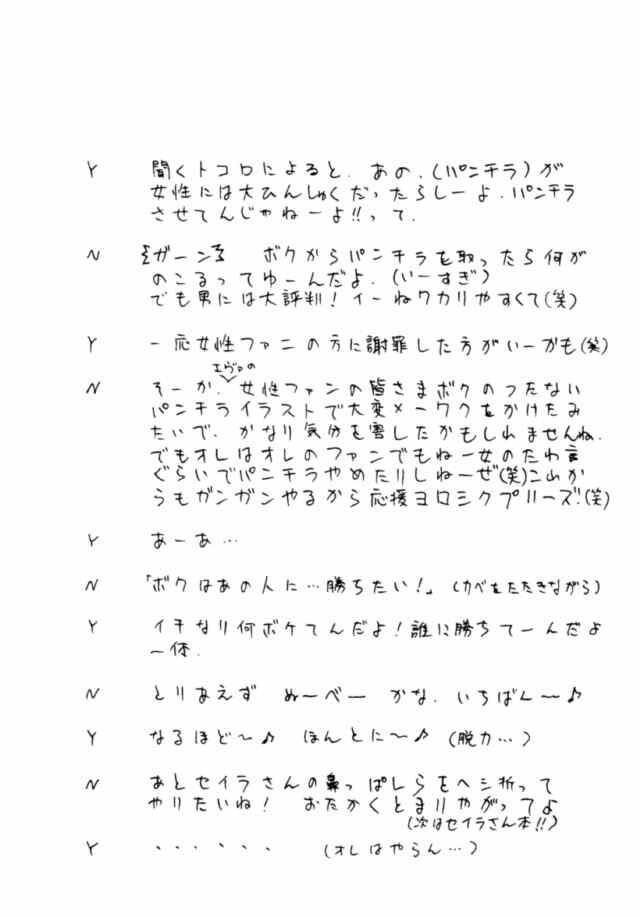 Y 聞くトコロによると、あの、(パンチラ)が
女性には大ひんしゅくだったらしーよ、パンチラ
させてんじゃねーよ!!って、
N ガーン ボクからパンチラを取ったら何が
のこるってゆーんだよ、(いーすぎ)
でも男には大評判!イーねワカリやすくて(笑)
Y 一応女性ファンの方に謝罪した方がいーかも(笑)
エヴァの
N そーか、女性ファンの皆さまボクのつたない
パンチライラストで大変メーワクをかけたみ
たいで、かなり気分を害したかもしれませんね、
でもオレはオレのファンでもねー女のたわ言
ぐらいでパンチラやめたりしねーぜ(笑)こHか
らもガンガンやるから応援ヨロシクプリーズ!(笑)
Y あーあ…
N 「ボクはあの人に…勝ちたい!」(カベをたたきながら)
Y イキなり何ボケてんだよ!誰に勝ちてーんだよ
一体、
N とりあえず ぬーべー かな、いちばん〜♪
Y なるほど〜♪ ほんとに〜♪ (脱力…)
N あとセイラさんの鼻っぱしらをヘシ折って
やりたいね! おたかくとまりやがってよ
(次はセイラさん本!!)
Y ・・・・・・ (オレはやらん…)